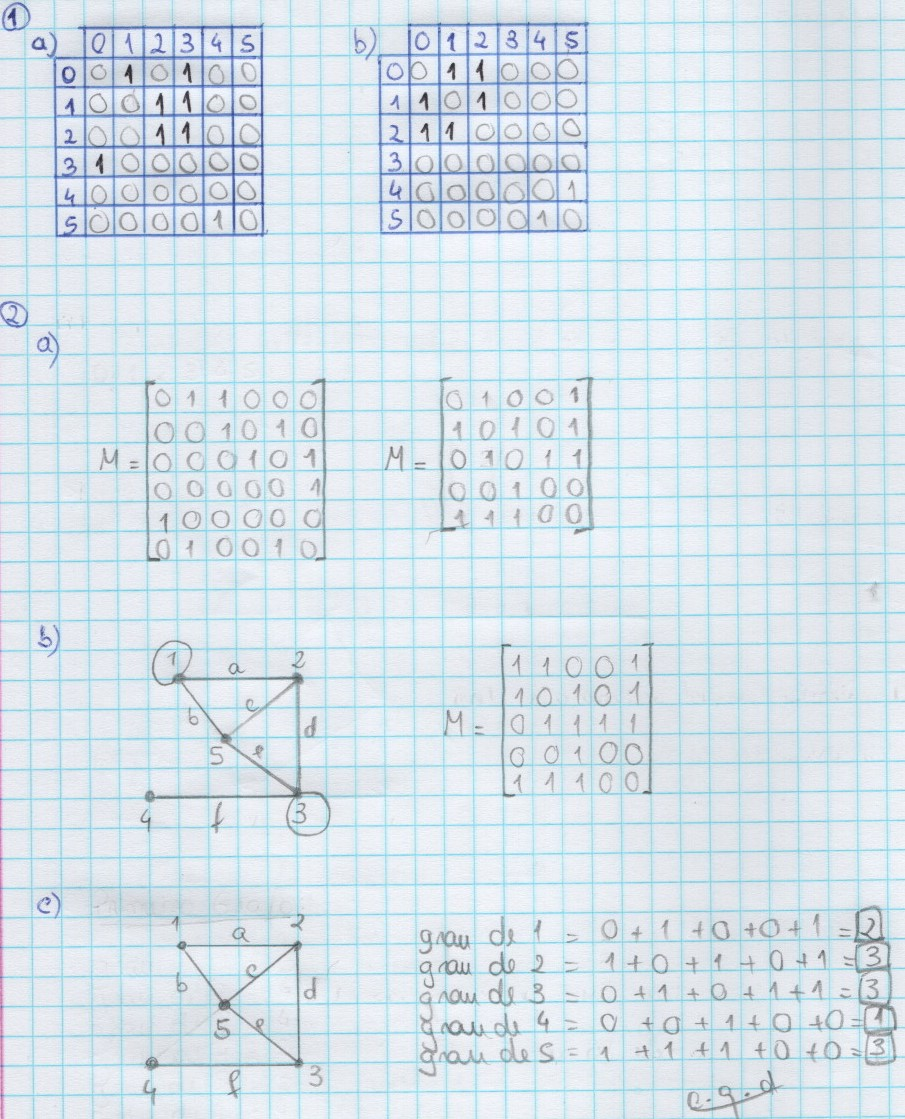 1
a) 0 1 2 3 4 5
0 0 1 0 1 0 0
1 0 0 1 1 0 0
2 0 0 1 1 0 0
3 1 0 0 0 0 0
4 0 0 0 0 0 0
5 0 0 0 0 1 0
b) 0 1 2 3 4 5
0 0 1 1 0 0 0
1 1 0 1 0 0 0
2 1 1 0 0 0 0
3 0 0 0 0 0 0
4 0 0 0 0 0 1
5 0 0 0 0 1 0
2
a)
0 1 1 0 0 0
0 0 1 0 1 0
M = 0 0 0 1 0 1
0 0 0 0 0 1
1 0 0 0 0 0
0 1 0 0 1 0
0 1 0 0 1
1 0 1 0 1
M = 0 1 0 1 1
0 0 1 0 0
1 1 1 0 0
b)
1 a 2
b c d
5 e
4 f 3
1 1 0 0 1
1 0 1 0 1
M = 0 1 1 1 1
0 0 1 0 0
1 1 1 0 0
c)
1 a 2
b c d
5 e
4 f 3
grau de 1 = 0 + 1 + 0 + 0 + 1 = 2
grau de 2 = 1 + 0 + 1 + 0 + 1 = 3
grau de 3 = 0 + 1 + 0 + 1 + 1 = 3
grau de 4 = 0 + 0 + 1 + 0 + 0 = 1
grau de 5 = 1 + 1 + 1 + 0 + 0 = 3
c.q.d